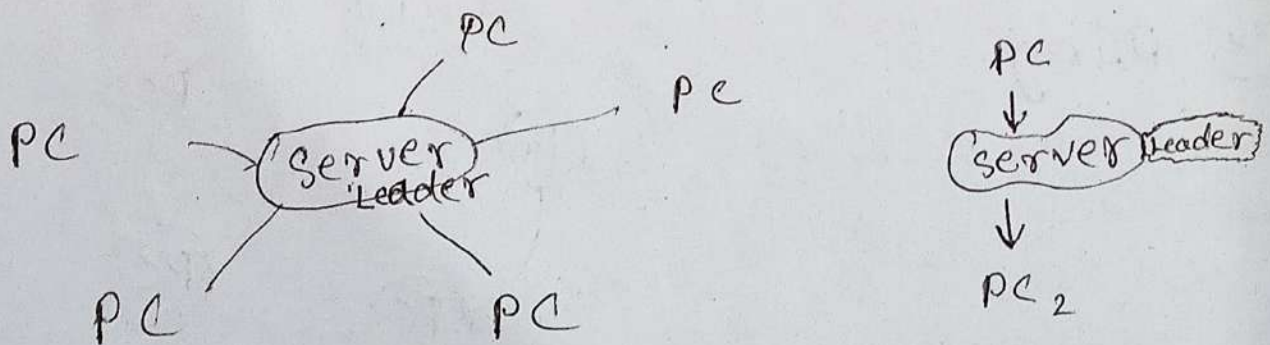 PC
PC
PC
Server
Leader
PC
PC
PC
Server Leader
PC2